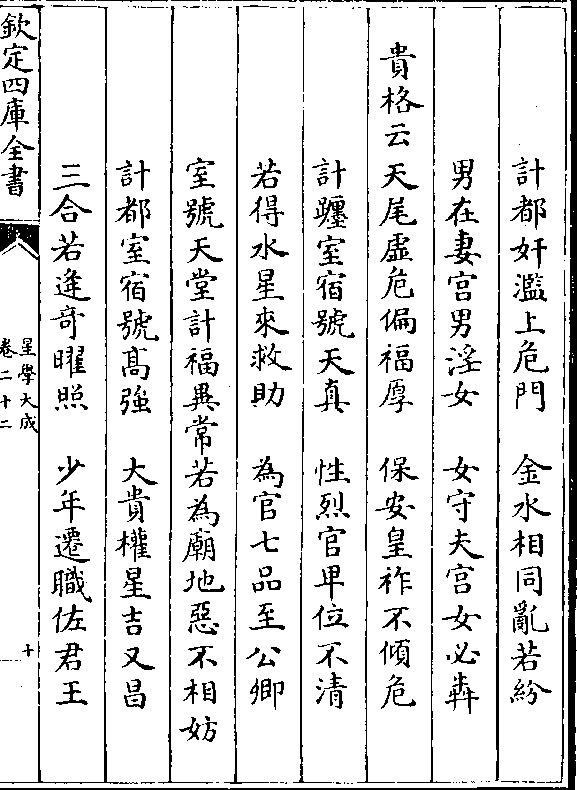 計都奸濫上危門　金水相同亂若紛
男在妻宮男淫女　女守夫宮女必犇
貴格云天尾虛危偏福厚　保安皇祚不傾危
計躔室宿號天真　性烈官卑位不清
若得水星來救助　為官七品至公卿
室號天堂計福異常若為廟地惡不相妨
計都室宿號髙強　大貴權星吉又昌
三合若逢奇曜照　少年遷職佐君王
欽定四庫全書
星學大成
卷二十二
十